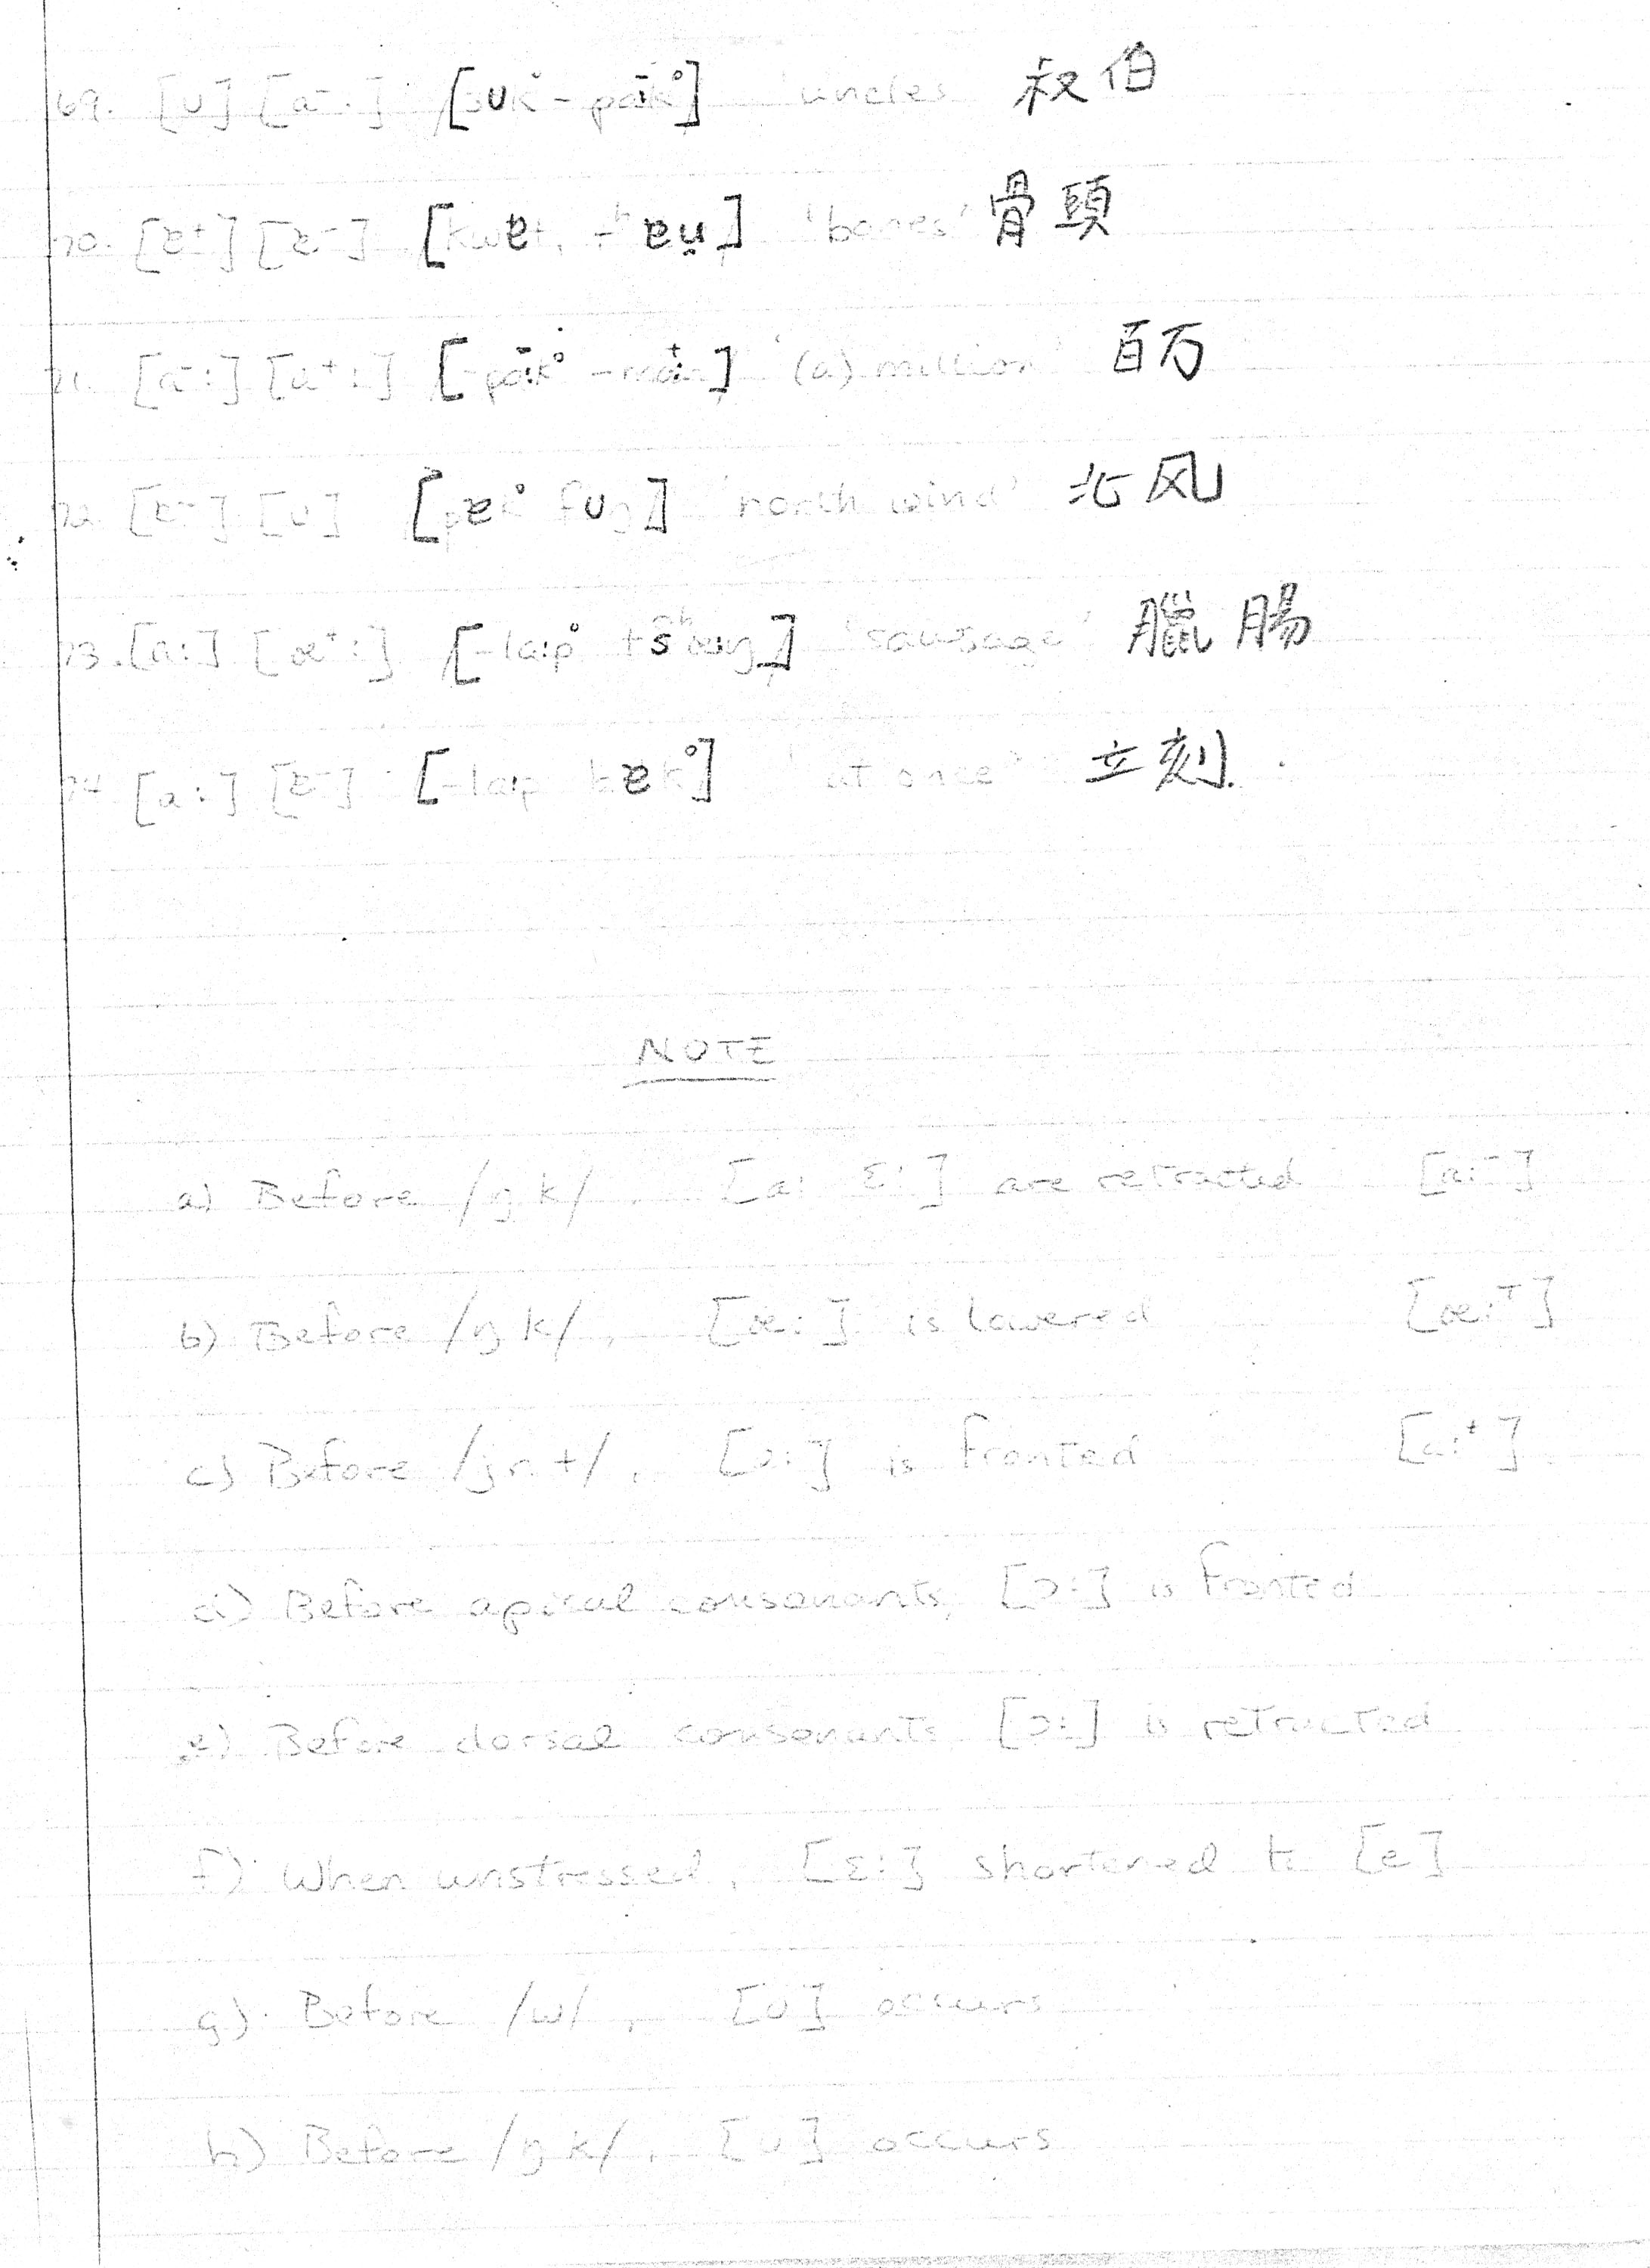 69. [ʊ] [a-:] [sʊk° - pa:k°] 'uncles' 叔伯
70. [ɐ+] [ɐ-] [kwɐt, tʰɐu̯] 'bones' 骨頭
71. [a-:] [a+:] [-pa:k° -ma:n] '(a) million' 百万
72. [ɐ-] [ʊ] [pɐk° fʊŋ] 'north wind' 北风
73. [a:] [œ+:] [-la:p° tsʰœŋ] 'sausage' 臘腸
74. [a:] [ɐ-] [-la:p hɐk°] 'at once' 立刻.
NOTE
a) Before /ŋ k/ [a: ɛ:] are retracted [a:-]
b) Before /ŋ k/, [œ:] is lowered [œ:┬]
c) Before /j n t/, [a:] is fronted [a:+]
d) Before apical consonants, [ɔ:] is fronted
e) Before dorsal consonants [ɔ:] is retracted
f) When unstressed, [ɛ:] shortened to [e]
g) Before /w/, [ʊ] occurs
h) Before /ŋ k/, [ʊ] occurs